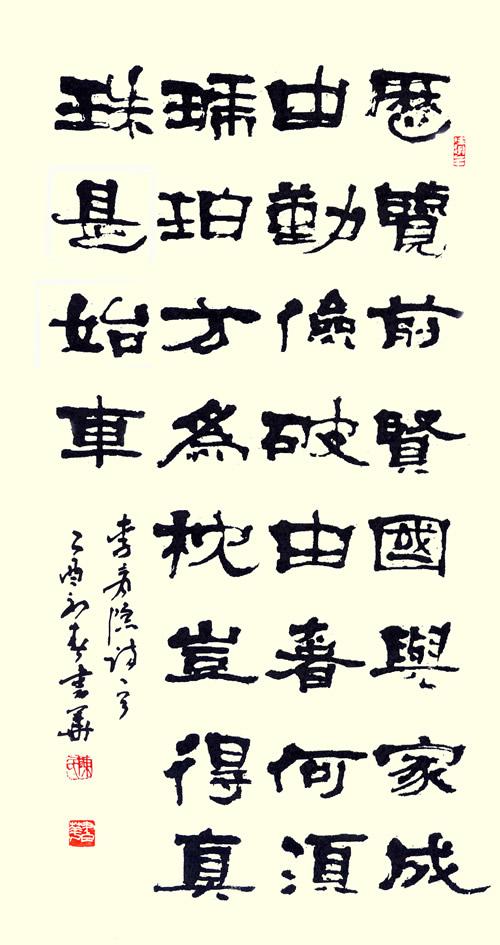 歷覽前賢國與家成
由勤儉破由奢何須
琥珀方為枕豈得真
珠是始車
李商隱詩
乙酉初春書華